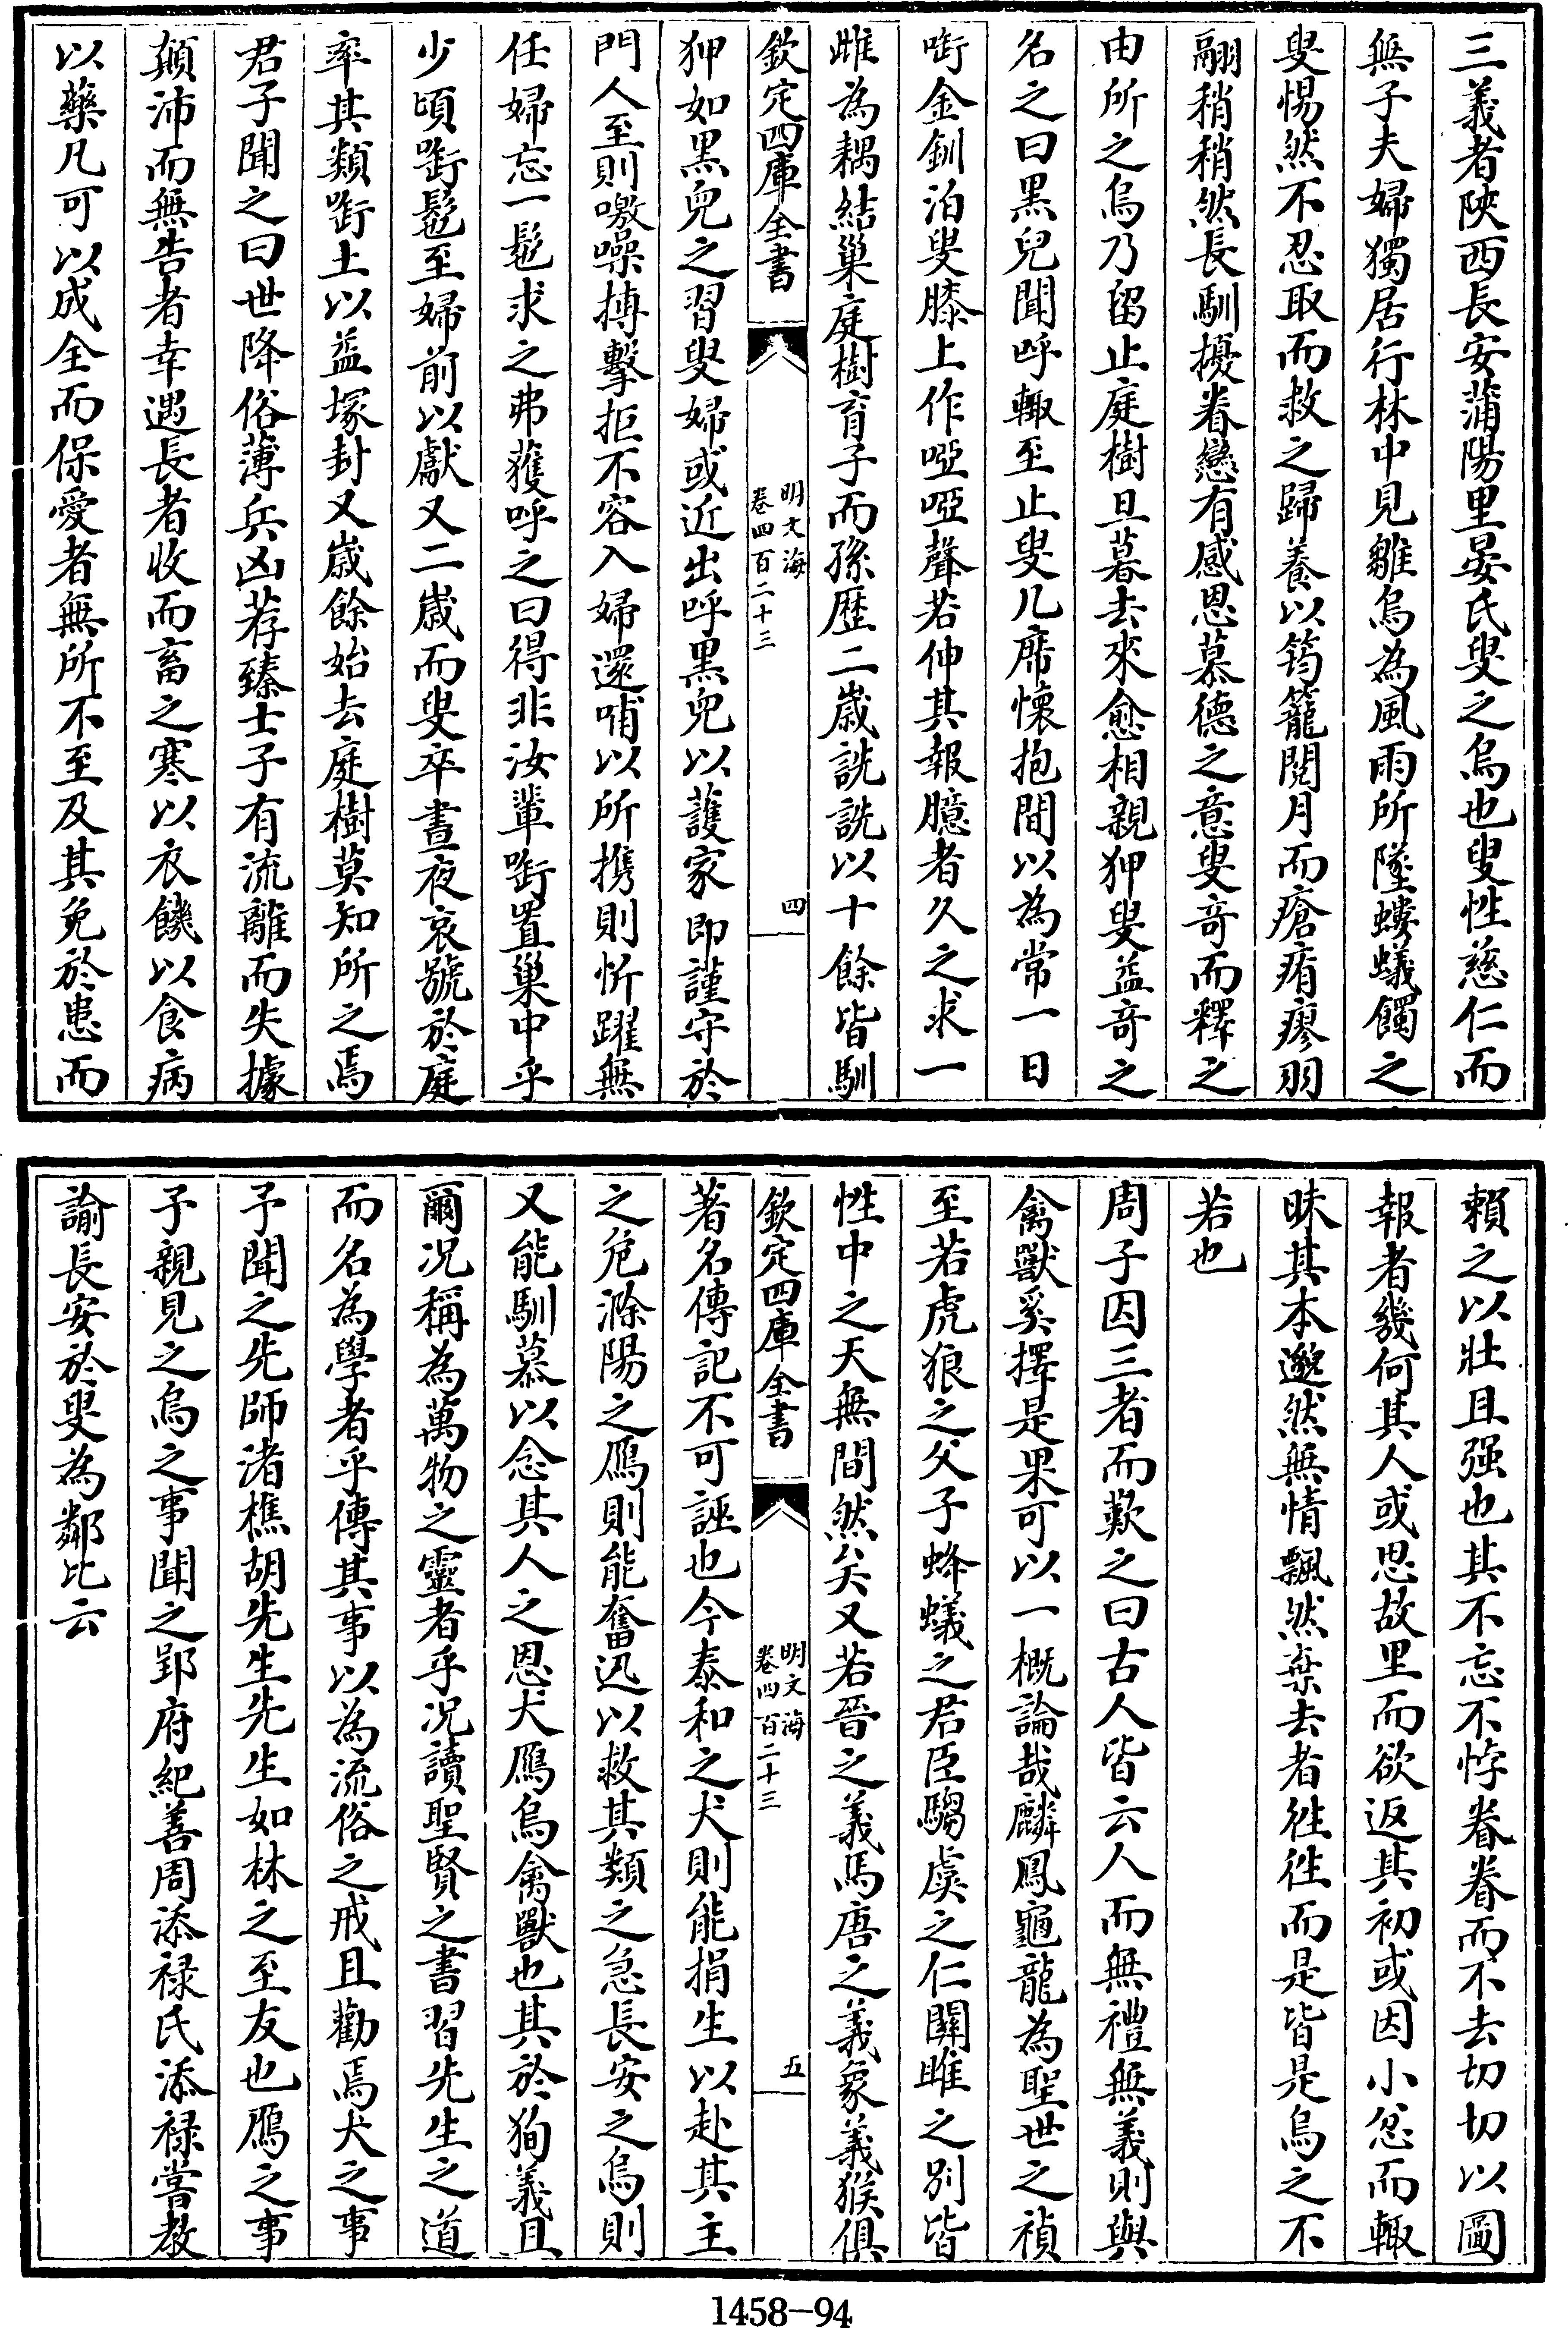 三義者陜西長安蒲陽里晏氏叟之烏也叟性慈仁而
無子夫婦獨居行林中見雛烏為風雨所墜螻蟻饘之
叟惕然不忍取而救之歸養以筠籠閱月而瘡痏瘳羽
翮稍稍然長馴擾眷戀有感恩慕德之意叟竒而釋之
由所之烏乃留止庭樹旦暮去來愈相親狎叟益竒之
名之曰黑兒聞呼輙至止叟几席懷抱間以為常一日
㗸金釧泊叟膝上作啞啞聲若伸其報臆者久之求一
雌為耦結巢庭樹育子而孫歴二嵗詵詵以十餘皆馴
欽定四庫全書
明文海
卷四百二十三
四
狎如黑兒之習叟婦或近出呼黑兒以護家即謹守於
門人至則噭噪搏擊拒不容入婦還哺以所携則忻躍無
任婦忘一髢求之弗獲呼之曰得非汝輩㗸置巢中乎
少頃㗸髢至婦前以獻又二嵗而叟卒晝夜哀號於庭
率其類㗸土以益塚封又嵗餘始去庭樹莫知所之焉
君子聞之曰世降俗薄兵凶荐臻士子有流離而失據
顛沛而無告者幸遇長者收而畜之寒以衣饑以食病
以藥凡可以成全而保愛者無所不至及其免於患而
賴之以壯且强也其不忘不悖眷眷而不去切切以圖
報者幾何其人或思故里而欲返其初或因小忿而輙
昧其本邈然無情飄然棄去者往往而是皆是烏之不
若也
周子因三者而歎之曰古人皆云人而無禮無義則與
禽獸奚擇是果可以一概論哉麟鳳龜龍為聖世之禎
至若虎狼之父子蜂蟻之君臣騶虞之仁關雎之別皆
性中之天無間然矣又若晉之義馬唐之義象義猴俱
欽定四庫全書
明文海
卷四百二十三
五
著名傳記不可誣也今泰和之犬則能捐生以赴其主
之危滁陽之鴈則能奮迅以救其類之急長安之烏則
又能馴慕以念其人之恩犬鴈烏禽獸也其於狥義且
爾况稱為萬物之靈者乎况讀聖賢之書習先生之道
而名為學者乎傳其事以為流俗之戒且勸焉犬之事
予聞之先師渚樵胡先生先生如林之至友也鴈之事
予親見之烏之事聞之郢府紀善周添禄氏添禄嘗教
諭長安於叟為鄰比云
1458-94